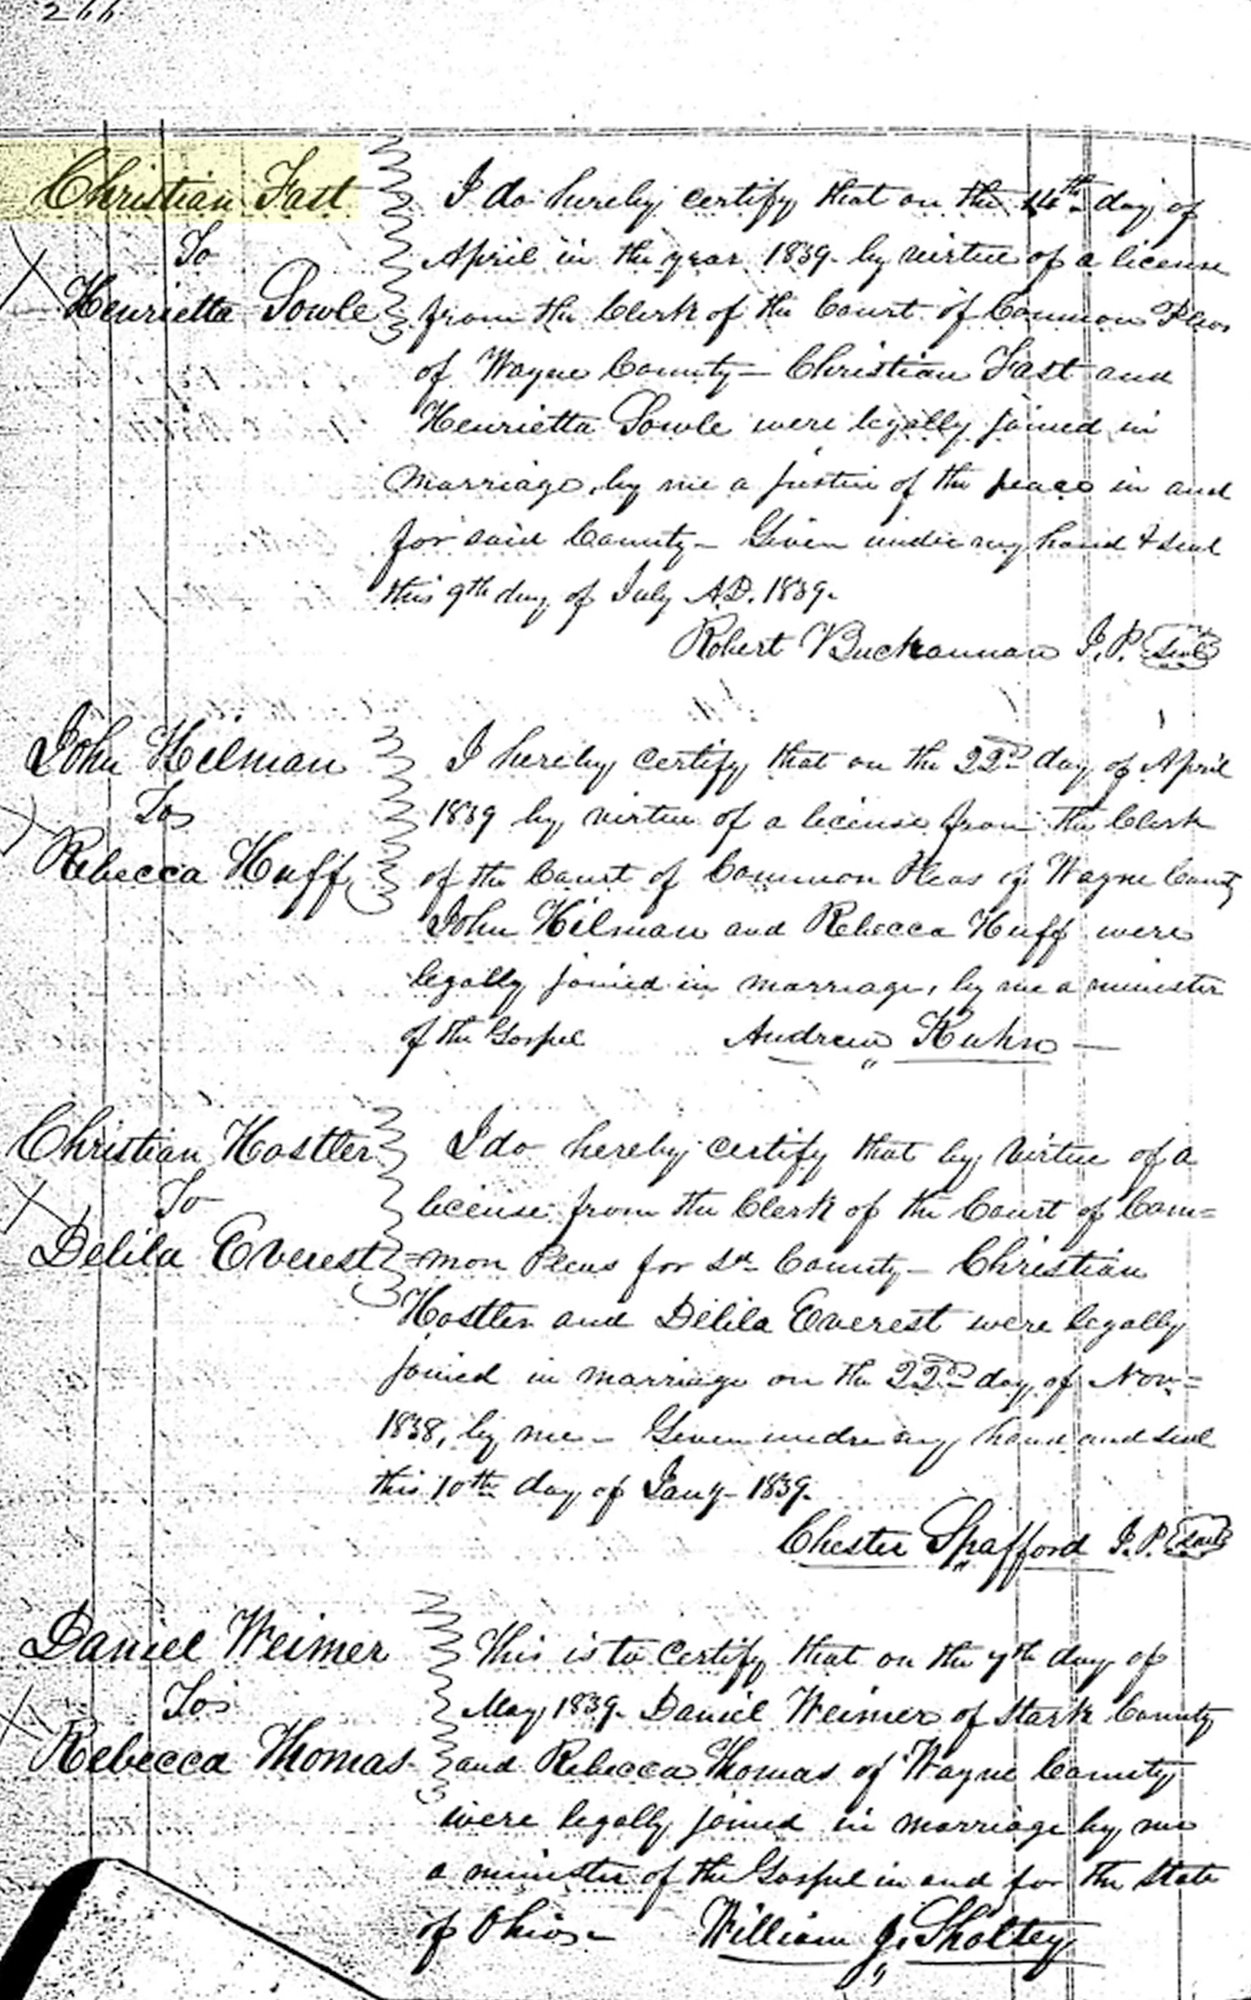 266
Christian Fast
To
Henrietta Powle
I do hereby certify that on the 14th day of
April in the year 1839 by virtue of a license
from the Clerk of the Court of Common Pleas
of Wayne County - Christian Fast and
Henrietta Powle were legally joined in
marriage, by me a justice of the peace in and
for said County - Given under my hand & seal
this 9th day of July A.D. 1839.
Robert Buckannan J.P. Seal
John Hilman
To
Rebecca Huff
I hereby certify that on the 22nd day of April
1839 by virtue of a license from the Clerk
of the Court of Common Pleas of Wayne County
John Hilman and Rebecca Huff were
legally joined in marriage, by me a minister
of the Gospel Andrew Kuhn -
Christian Hostler
To
Delila Everest
I do hereby certify that by virtue of a
license from the Clerk of the Court of Com=
=mon Pleas for sd County - Christian
Hostler and Delila Everest were legally
joined in marriage on the 22nd day of Nov=
1838, by me - Given undre my hand and seal
this 10th day of Jany - 1839.
Chester Spafford J.P. Seal
Daniel Weimer
To
Rebecca Thomas
This is to certify that on the 7th day of
May 1839. Daniel Weimer of Stark County
and Rebecca Thomas of Wayne County
were legally joined in marriage by me
a minister of the Gospel in and for the State
of Ohio - William J. Sholtey